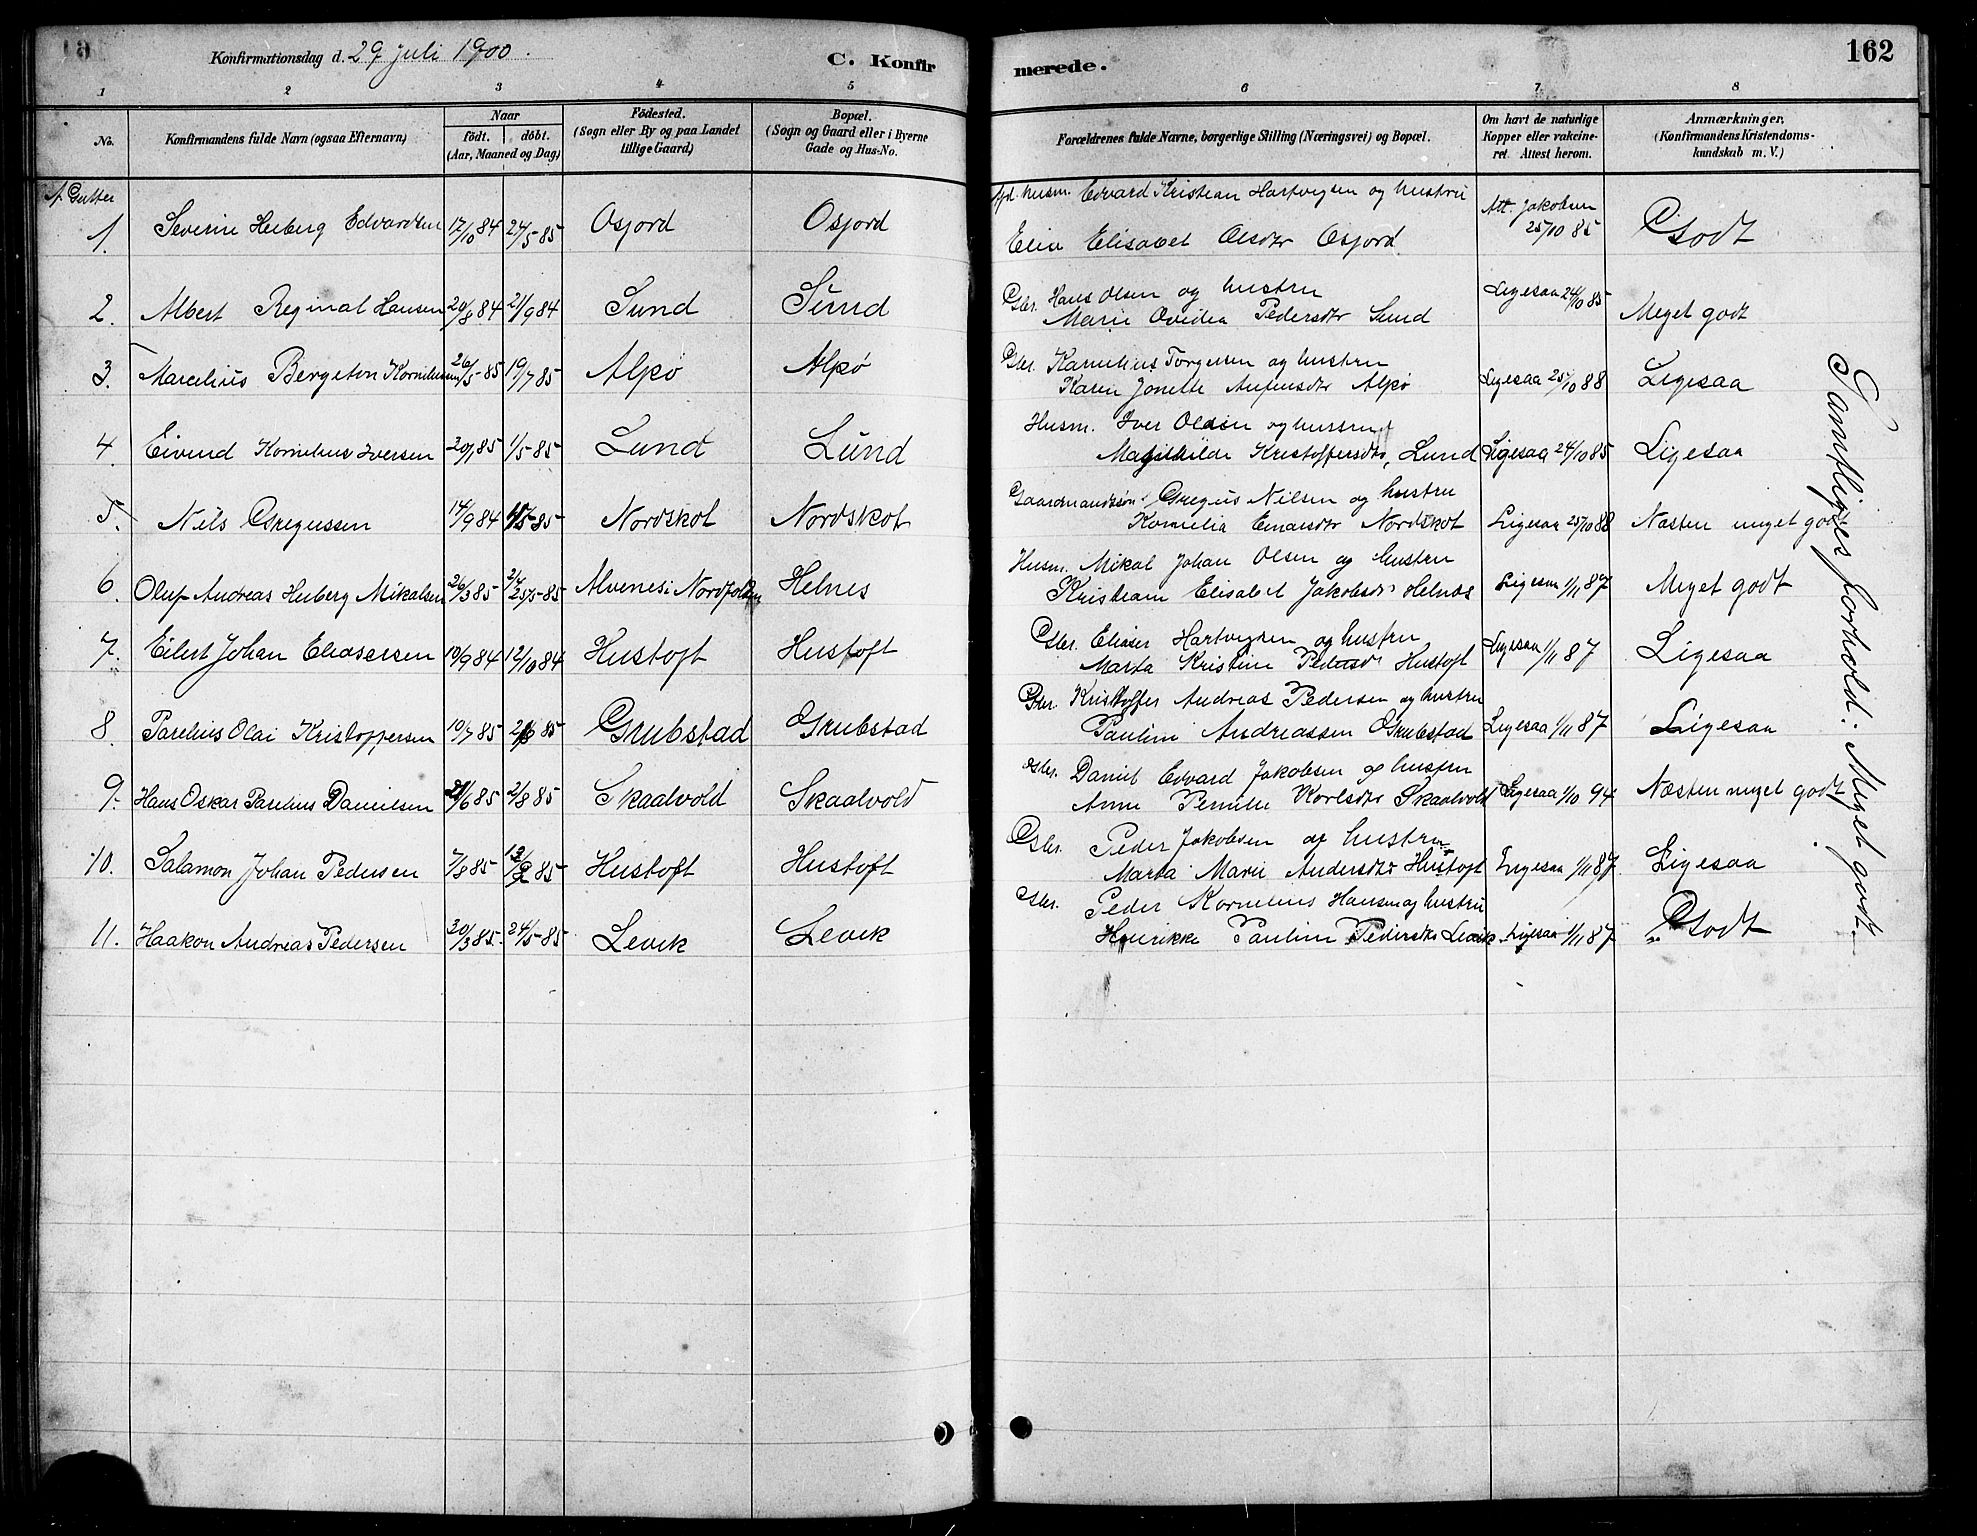 Konfirmationsdag d. 29 juli 1900.
C. Konfir
merede.
162
1 2 3 4 5 6 7 8
No.
Konfirmandens fulde Navn (ogsaa Efternavn)
Naar
født. døbt.
(Aar, Maaned og Dag)
Fødested.
(Sogn eller By og paa Landet
tillige Gaard)
Bopæl.
(Sogn og Gaard eller i Byerne
Gade og Hus-No.
Forældrenes fulde Navne, borgerlige Stilling (Næringsvei) og Bopæl.
Om havt de naturlige
Kopper eller vakcine-
ret. Attest herom.
Anmærkninger,
(Konfirmandens Kristendoms-
kundskab m. V.)
Gutter
1. Severin Heiberg Edvardsen 17/10 84 24/5 85 Osfjord Osfjord
husm. Edvard Kristian Hartvigsen og hustru
Elen Elisabet Olsdtr Osfjord Att. Jakobsen 25/10 85 Godt
2. Albert Reginal Hansen 20/8 84 21/9 84 Sund Sund
Gbr. Hans Olsen og hustru
Marie Ovidea Pedersdtr Sund Ligesaa 24/10 85 Meget godt
3. Marcelius Bergeton Kornelius 26/5-85 19/7 85 Alpø Alpø
Gbr. Karnelius Torgersen og hustru
Karen Jonette Alpø Ligesaa 25/10 88 Ligesaa
4. Eivind Kornelius Iversen 20/1 85 1/5-85 Lund Lund
Husm. Iver Olsen og hustru
Kristoffersdtr, Lund Ligesaa 24/10 85 Ligesaa
5. Nils Gregussen 14/9 84 Nordskot Nordskot
Gaardmandssøn Gregus Nilsen og hustru
Kornelia Einarsdtr Nordskot Ligesaa 25/10 88 Næsten meget godt
6. Oluf Andreas Heiberg Mikalsen 26/3 85 25/5-85 Alvenes i Nordfolden Helnes
Husm. Mikal Johan Olsen og hustru
Elisabet Jakobsdr Helnes Ligesaa 1/11 87 Meget godt
7. Eilert Johan Eliasersen 10/9 84 12/10 84 Hustoft Hustoft
Gbr. Eliaser Hartvigsen og hustru
Marta Kristine Hustoft Ligesaa 1/11 87 Ligesaa
8. Parelius Olai Kristoffersen 19/7 85 Grubstad Grubstad
Gbr. Kristoffer Andreas Pedersen og hustru
Pauline Andreassen Grubstad Ligesaa 1/11 87 Ligesaa
9. Hans Oskar Parelius Danielsen 2/8 85 Skaalvold Skaalvold
Gbr. Daniel Edvard Jakobsen og hustru
Anne Pernille Karlsdtr Skaalvold Ligesaa 1/10 94 Næsten meget godt
10. Salamon Johan Pedersen 7/8 85 Hustoft Hustoft
Gbr. Peder Jakobsen og hustru
Marta Marie Andersdtr Hustoft Ligesaa 1/11 87 Ligesaa
11. Haakon Andreas Pedersen 20/3 85. 24/5-85 Levik Levik
Gbr. Peder Kornelius Hansen og hustru
Henrikke Pauline Pedersdtr Levik Ligesaa 1/11 87 Godt
Samtliges forhold: Meget godt.